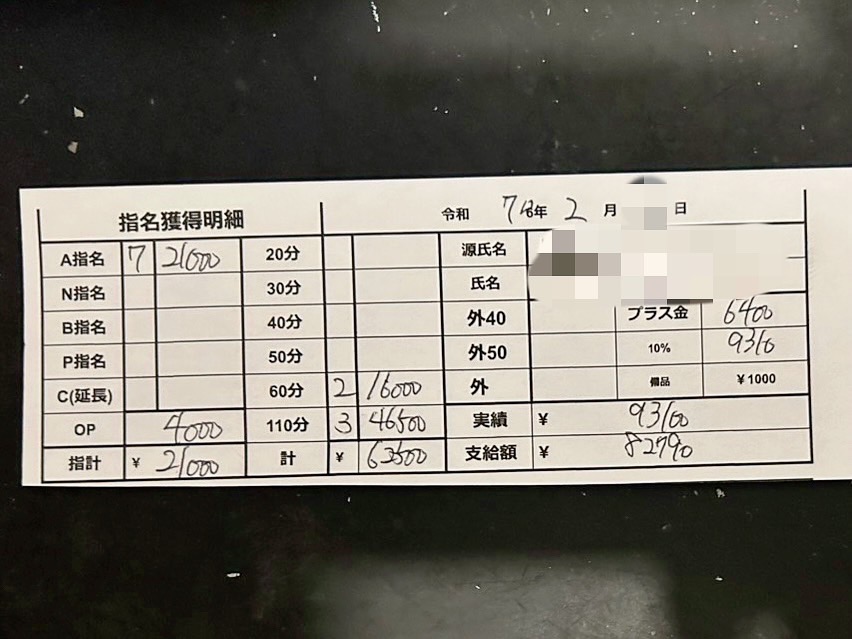 指名獲得明細 令和 7 年 2 月 日
A指名 7 21000 20分 源氏名
N指名 30分 氏名
B指名 40分 外40 プラス金 6400
P指名 50分 外50 10% 9310
C(延長) 60分 2 16000 外 備品 ¥1000
OP 4000 110分 3 46500 実績 ¥ 93100
指計 ¥ 21000 計 ¥ 支給額 ¥ 82790